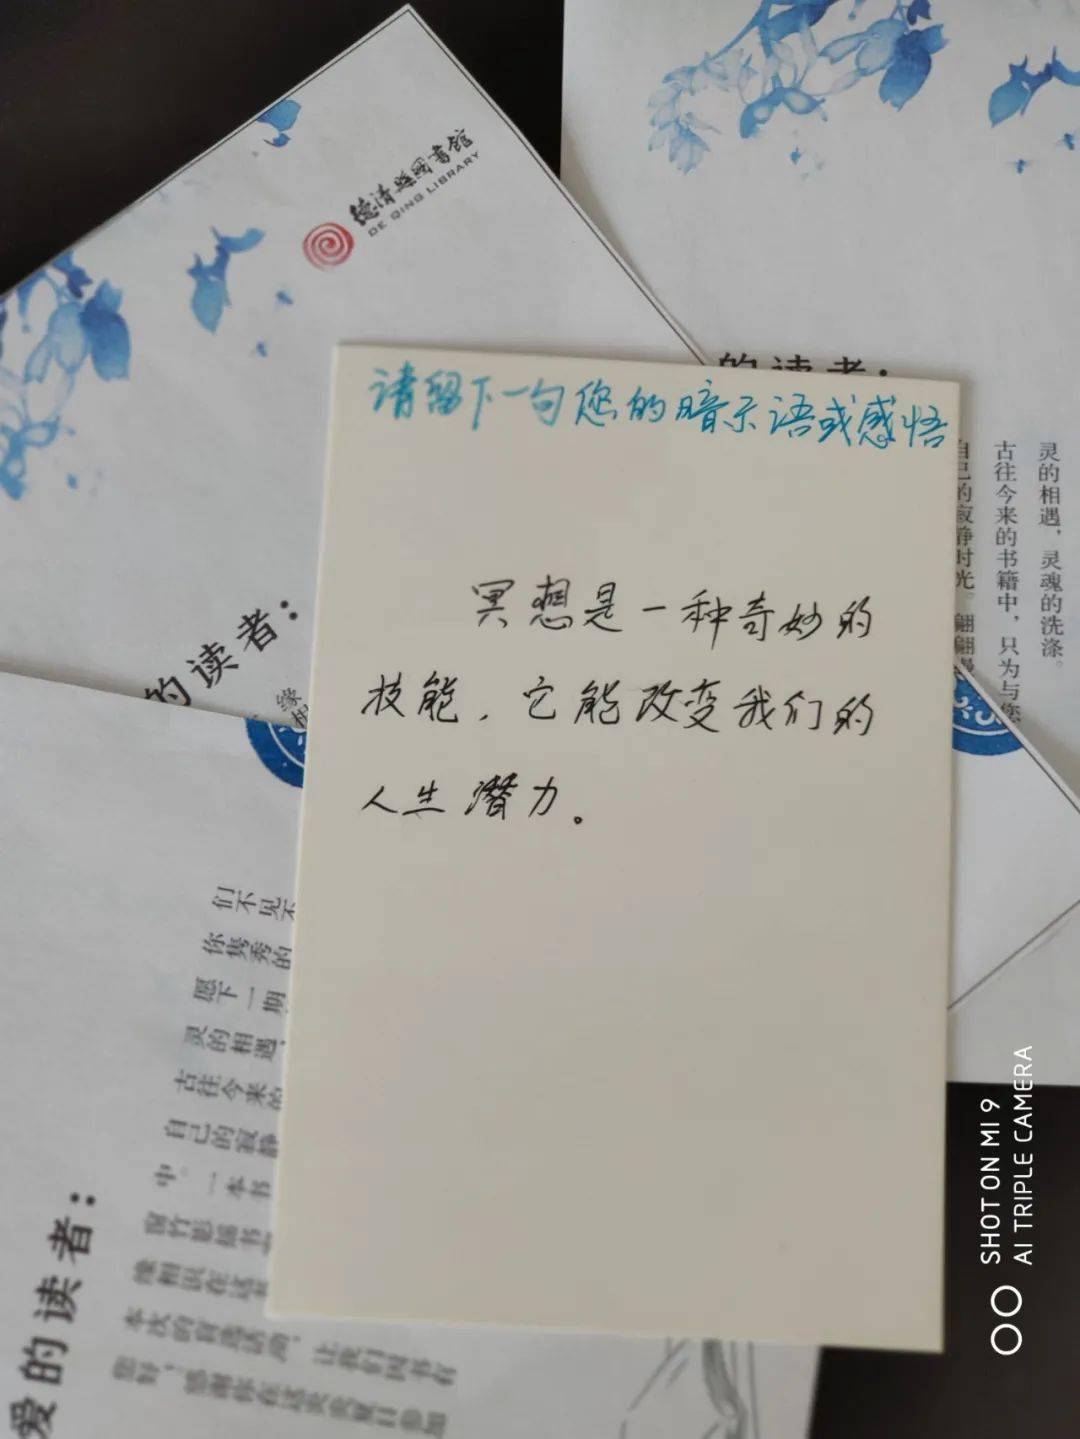 德清县图书馆
DE QING LIBRARY
的读者：
的读者：
请留下一句您的暗示语或感悟
冥想是一种奇妙的
技能，它能改变我们的
人生潜力。
灵的相遇，灵魂的洗涤。
古往今来的书籍中，只为与您
自己的寂静时光。翩翩
缘
们不见不
你隽秀的
愿下一期
灵的相遇，
古往今来的
自己的寂静
中。一本书
窗竹影摇书
缘相识在这
本次的盲选活动，让我们因书有
您好，感谢你在这炎炎夏日参加
爱的读者：
SHOT ON MI 9
AI TRIPLE CAMERA